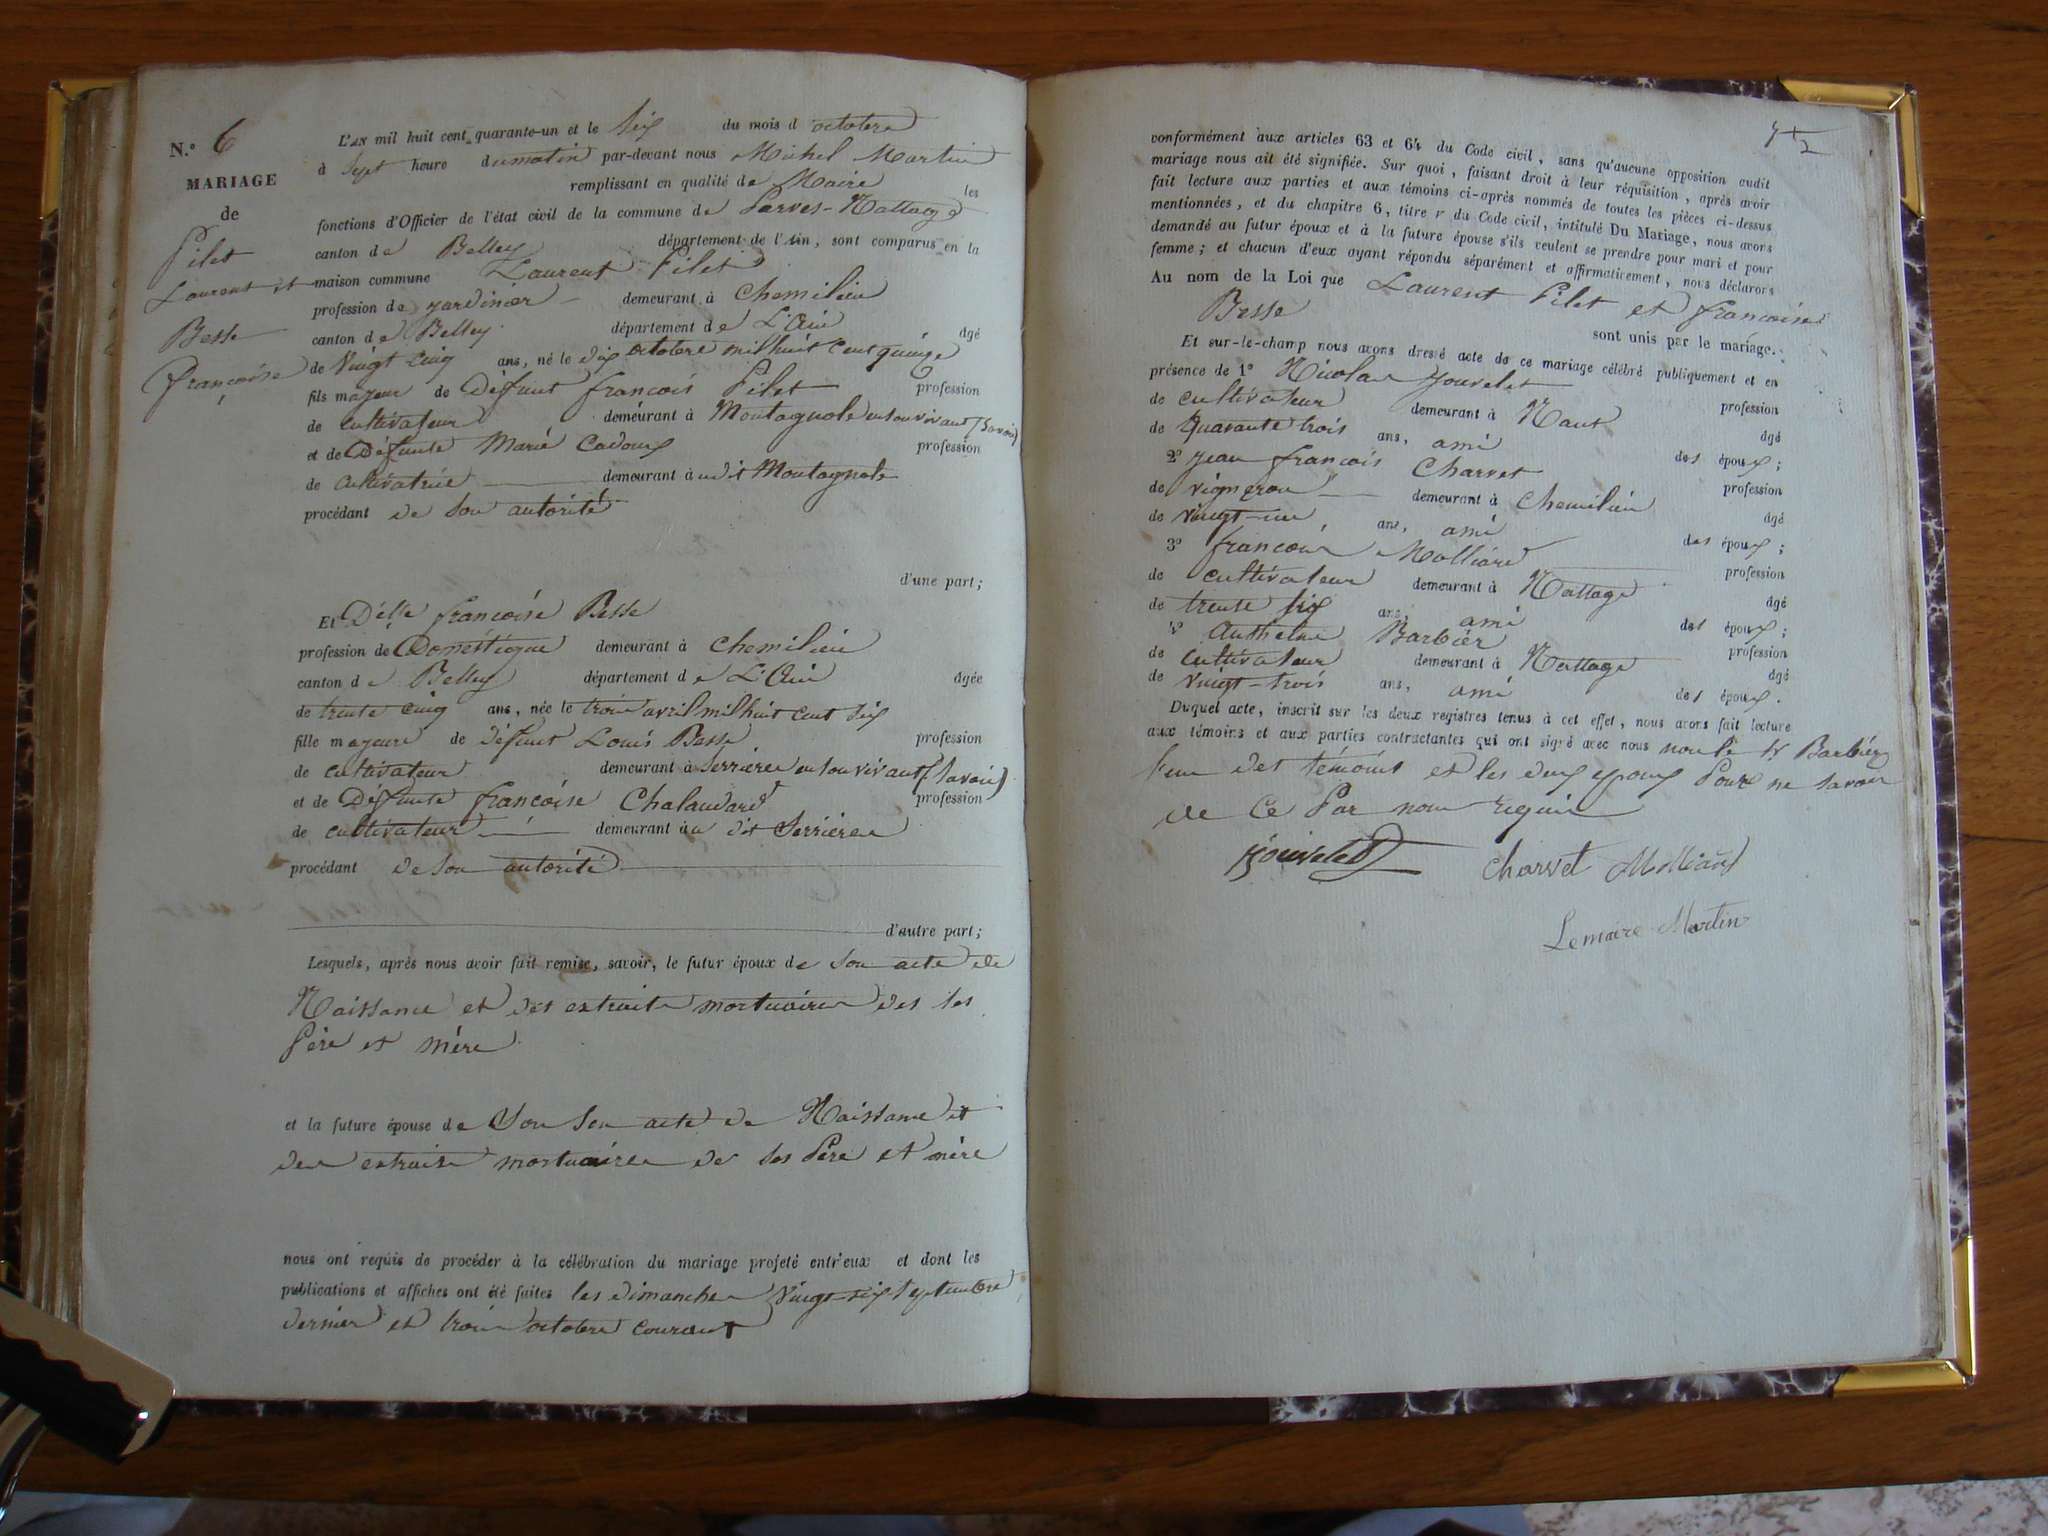 N.º 6
MARIAGE
de
Pilet
Laurent et
Besse
Françoise
L'AN mil huit cent quarante-un et le Six du mois d octobre
à Sept heure du matin par-devant nous Michel Martin
remplissant en qualité de Maire les
fonctions d'Officier de l'état civil de la commune de Parves-Nattage
canton de Belley département de l'Ain, sont comparus en la
maison commune Laurent Pilet
profession de jardinier demeurant à Chemilieu
canton de Belley département de L'Ain âgé
de Vingt cinq ans, né le dix octobre mil huit cent quinze
fils majeur de Défunt françois Pilet profession
de cultivateur demeurant à Montagnole en son vivant (Savoie)
et de Défunte Marie Cadoux profession
de cultivatrice demeurant à udit Montagnole
procédant de son autorité
d'une part;
Et Delle françoise Besse
profession de Doméstique demeurant à Chemilieu
canton de Belley département de L'Ain âgée
de trente cinq ans, née le trois avril mil huit cent six
fille majeure de défunt Louis Besse profession
de cultivateur demeurant à Serrières en son vivant (Savoie)
et de Défunte françoise Chalandard profession
de cultivateur demeurant àu dit Serrières
procédant de son autorité
d'autre part;
Lesquels, après nous avoir fait remise, savoir, le futur époux de son acte de
Naissance et des extraits mortuaires des ses
Père et mère
et la future épouse de Son son acte de Naissance et
des extraits mortuaires de ses Père et mère
nous ont requis de procéder à la célébration du mariage projeté entr'eux et dont les
publications et affiches ont été faites les dimanches Vingt-six septembre
dernier et trois octobre courant
conformément aux articles 63 et 64 du Code civil, sans qu'aucune opposition audit
mariage nous ait été signifiée. Sur quoi, faisant droit à leur réquisition, après avoir
fait lecture aux parties et aux témoins ci-après nommés de toutes les pièces ci-dessus
mentionnées, et du chapitre 6, titre v du Code civil, intitulé Du Mariage, nous avons
demandé au futur époux et à la future épouse s'ils veulent se prendre pour mari et pour
femme; et chacun d'eux ayant répondu séparément et affirmativement, nous déclarons
Au nom de la Loi que Laurent Pilet et françoise
Besse sont unis par le mariage.
Et sur-le-champ nous avons dressé acte de ce mariage célébré publiquement et en
présence de 1º Nicolas Jouvelet profession
de cultivateur demeurant à Nant âgé
de Quarante trois ans, ami des époux;
2º Jean françois Charvet profession
de vigneron demeurant à Chemilieu âgé
de vingt-un ans, ami des époux;
3º françois Molliard profession
de cultivateur demeurant à Nattage âgé
de trente six ans, ami des époux;
4º Anthelme Barbier profession
de cultivateur demeurant à Nattage âgé
de vingt-trois ans, ami des époux.
Duquel acte, inscrit sur les deux registres tenus à cet effet, nous avons fait lecture
aux témoins et aux parties contractantes qui ont signé avec nous non le Sr Barbier
l'un des témoins et les deux époux Pour ne savoir
de ce Par nous requis
Jouvelet
Charvet Molliard
Lemaire Martin